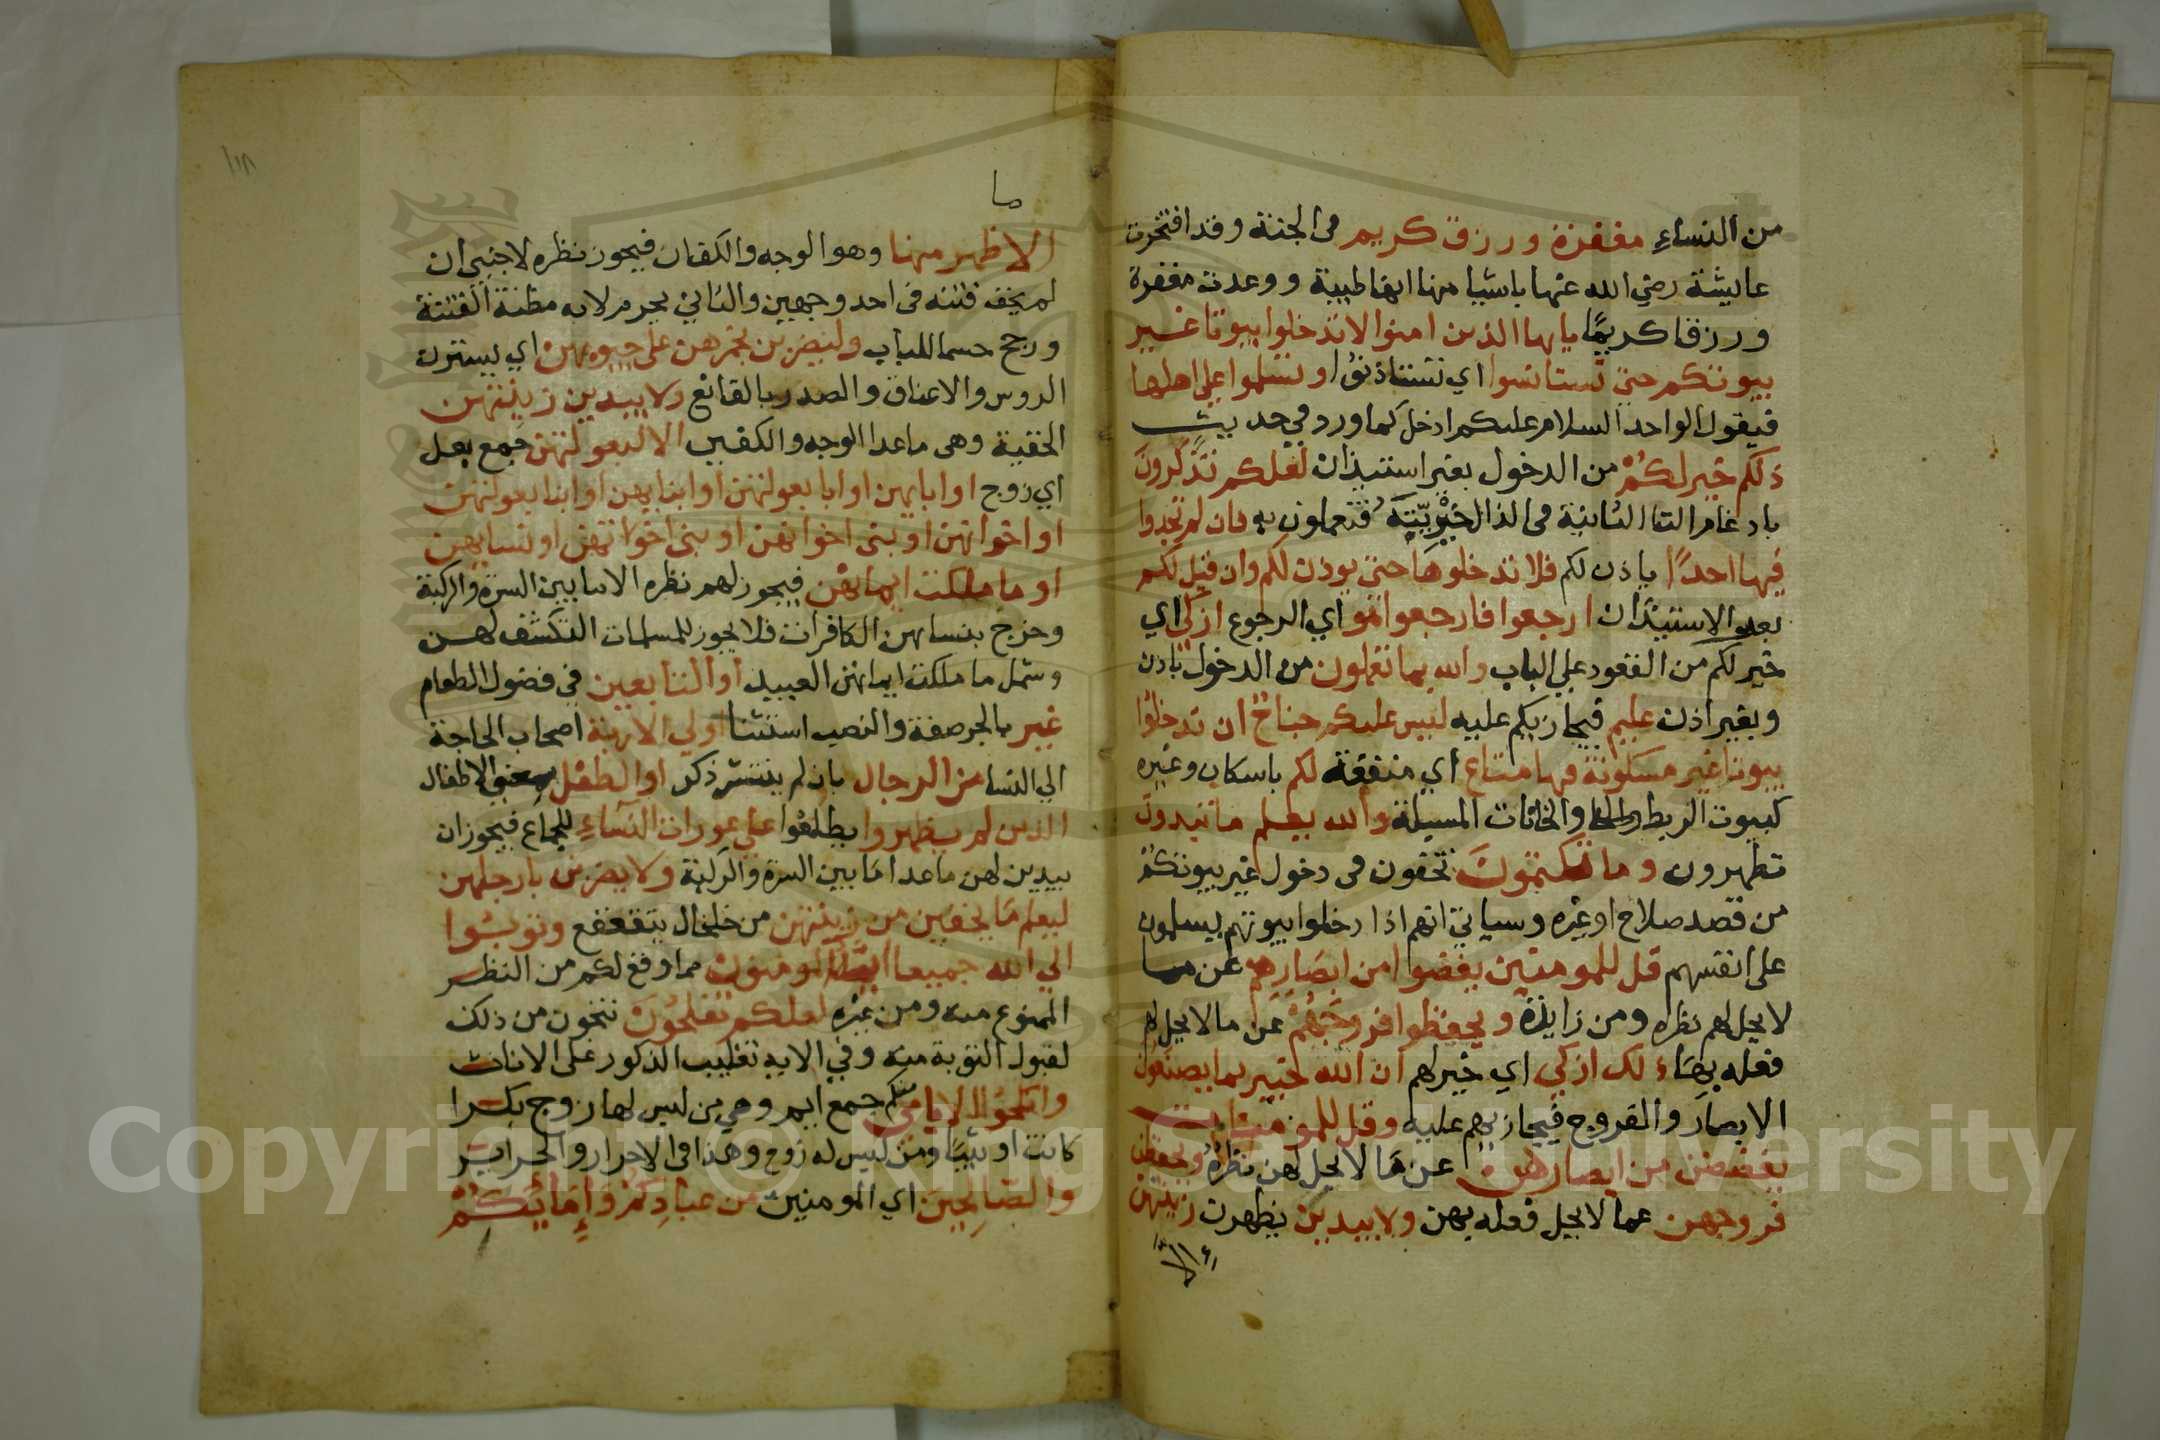 من النساء مغفرة ورزق كريم في الجنة وقد افتخرت
عايشة رضي الله عنها باشيا منها انها طيبة ووعدت مغفرة
ورزقا كريما يا يها الذين امنوا لا تدخلوا بيوتا غير
بيوتكم حتى تستانسوا اي تستاذنوا وتسلموا على اهلها
فيقول الواحد السلام عليكم ادخل كما ورد في حديث
ذلكم خير لكم من الدخول بغير استيذان لعلكم تذكرون
بادغام التا الثانية في الذال خيريته فتعملون به فان لم تجدوا
فيها احدا ياذن لكم فلا تدخلوها حتى يوذن لكم وان قيل لكم
بعد الاستيذان ارجعوا فارجعوا هو اي الرجوع ازكى اي
خير لكم من القعود على الباب والله بما تعملون من الدخول باذن
وبغير اذن عليم فيجازيكم عليه ليس عليكم جناح ان تدخلوا
بيوتا غير مسكونة فيها متاع اي منفعة لكم باسكان وغيره
كبيوت الربط والخانات المسبلة والله يعلم ما تبدون
تظهرون وما تكتمون تخفون في دخول غير بيوتكم
من قصد صلاح او غيره وسياتي انهم اذا دخلوا بيوتهم يسلمون
على انفسهم قل للمومنين يغضوا من ابصارهم عن ما
لا يحل لهم نظره ومن زايدة ويحفظوا فروجهم عن ما لا يحل لهم
فعله بها ذلك ازكى اي خير لهم ان الله خبير بما يصنعون
الابصار والفروج فيجازيهم عليه وقل للمومنات
يغضضن من ابصارهن عن ما لا يحل لهن نظره ويحفظن
فروجهن عما لا يحل فعله بهن ولا يبدين يظهرن زينتهن
الا
١٠٨
ما
الا ظهر منها وهو الوجه والكفان فيجوز نظره لاجنبي ان
لم يخف فتنه في احد وجهين والثاني يحرم لانه مظنة الفتنة
ورجح حسما للباب وليضربن بخمرهن على جيوبهن اي يسترن
الروس والاعناق والصدر بالقانع ولا يبدين زينتهن
الخفية وهي ما عدا الوجه والكفين الا لبعولتهن جمع بعل
اي زوج او ابايهن او ابا بعولتهن او ابنايهن او ابنا بعولتهن
او اخوانهن او بنى اخوانهن او بنى اخواتهن او نسايهن
او ما ملكت ايمانهن فيجوز لهم نظره الا ما بين السرة والركبة
وخرج بنسايهن الكافرات فلا يجوز للمسلمات التكشف لهن
وشمل ما ملكت ايمانهن العبيد او التابعين في فضول الطعام
غير بالجر صفة والنصب استثنا اولي الاربة اصحاب الحاجة
الي النسا من الرجال بان لم ينتشر ذكر او الطفل بمعنى الاطفال
الذين لم يظهروا يطلعوا على عورات النساء للجماع فيجوز ان
يبدين لهن ما عدا ما بين السرة والركبة ولا يضربن بارجلهن
ليعلم ما يخفين من زينتهن من خلخال يتقعقع وتوبوا
الي الله جميعا ايها المومنون مما وقع لكم من النظر
الممنوع منه ومن غيره لعلكم تفلحون تنجون من ذلك
لقبول التوبة منه وفي الايه تغليب الذكور على الاناث
وانكحوا الايامى منكم جمع ايم وهي من ليس لها زوج بكرا
كانت او ثيبا ومن ليس له زوج وهذا في الاحرار والحراير
والصالحين اي المومنين من عبادكم وامايكم
Copyright © King Saud University